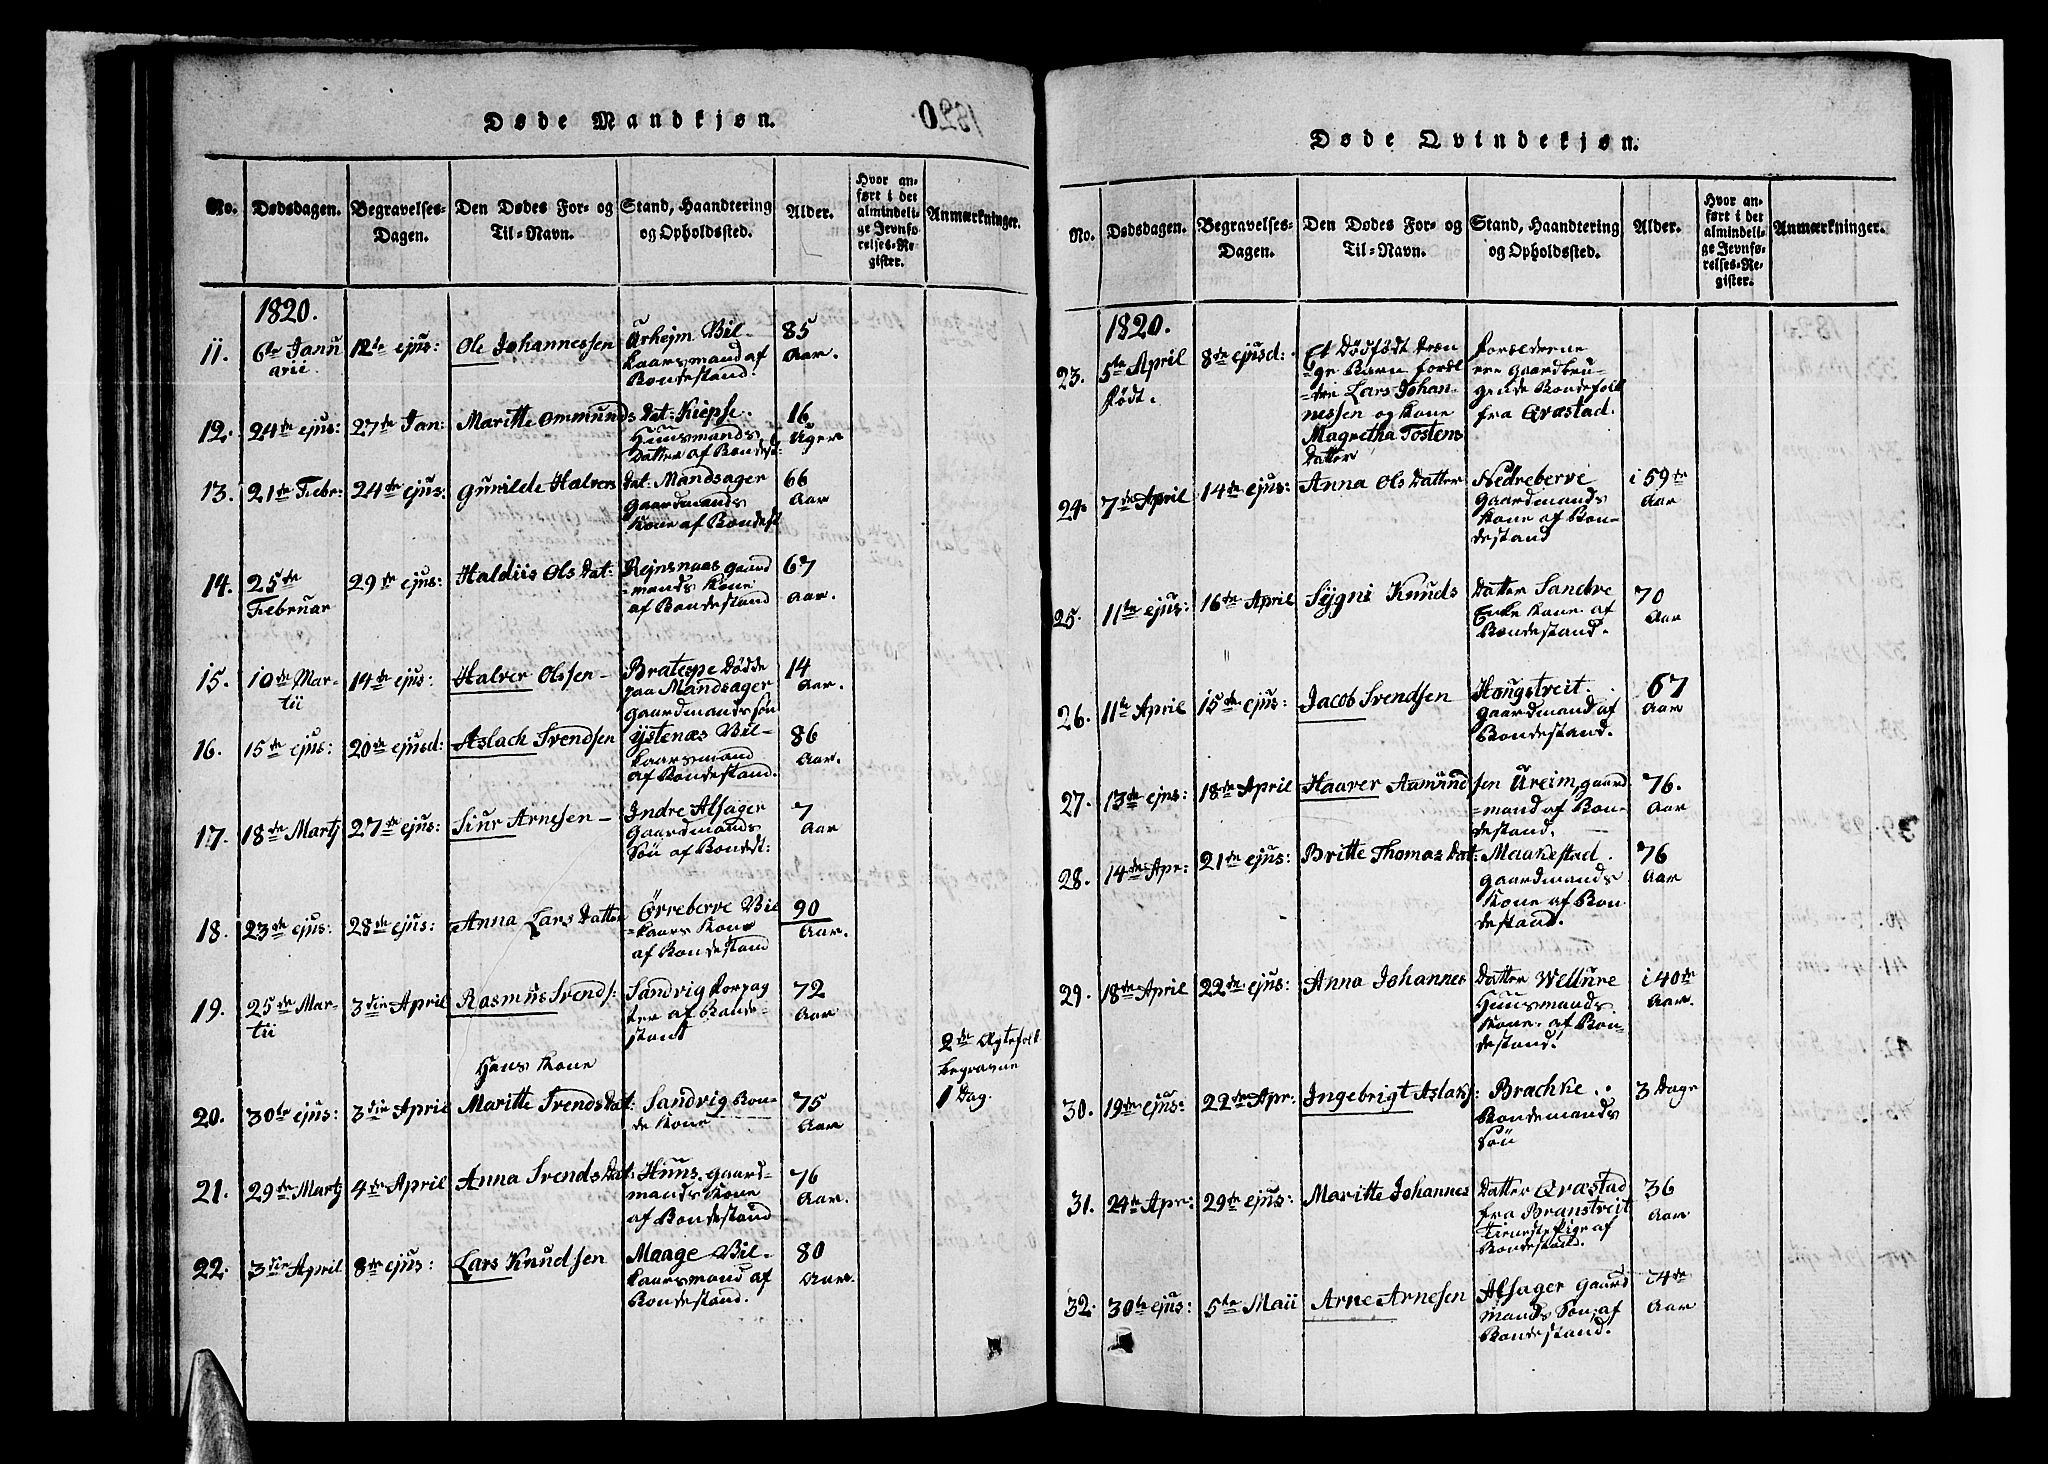 Døde Mandkjøn.
1820.
No.
Dødsdagen.
Begravelses-
Dagen.
Den Dødes For- og
Til-Navn.
Stand, Haandtering
og Opholdssted.
Alder.
Hvor an-
ført i det
almindeli-
ge Jevnfø-
relses-Re-
gister.
Anmærkninger.
1820.
11. 6te Janu
arii.
12te ejus:
Ole Johannessen
Urheim Vil-
kaarsmand af
Bondestand.
85
Aar.
12. 24de ejus:
27de Jan:
Maritte Ommunds
Dat: Kiepse.
Huusmands
Datter af Bondest:
16
Uger
13. 21de Febr:
24de ejus:
Gunilde Halvers
Dat: Mandsager
Gaardmands
Kone af Bondest
66
Aar
14. 25de
Februar
29de ejus:
Haldiis Ols Dat:
Rejnsnaas Gaard
-mands Kone
af Bondestand
67
Aar.
15. 10de Mar-
tii
14de ejus:
Halver Olssen -
Bratespe Dødde
paa Mandsager
Gaardmands Søn
14
Aar.
16. 15de ejus:
20de ejusd:
Aslach Svendsen
Ystenæs Vil-
kaarsmand
af Bondestand.
86
Aar.
17. 18de Martj
27de ejus:
Siur Arnesen -
Indre Alsager
Gaardmands
Søn af Bondest:
7
Aar
18. 23de ejus:
28de ejus:
Anna Lars Datter
Örreberve Vil
-kaars Kone
af Bondestand
90
Aar.
19. 25de Mar-
tii
3die April
Rasmus Svends:
Sandvig Forpag
ter af Bonde-
stand
72
Aar
Hans Kone
2de Ægtefolk
begravne
1 Dag.
20. 30te ejus:
3die April
Maritte Svends Dat:
Sandvig Bon-
de Kone
75
Aar
21. 29de Martj
4de April
Anna Svends Dat:
Huus. Gaard-
mands Kone
af Bondestand
76
Aar.
22. 3die April
8de ejus:
Lars Knudsen
Maage Vil-
kaarsmand af
Bondestand.
80
Aar.
Døde Qvindekjøn.
No.
Dødsdagen.
Begravelses-
Dagen.
Den Dødes For- og
Til-Navn.
Stand, Haandtering
og Opholdssted.
Alder.
Hvor an-
ført i det
almindeli-
ge Jevnfø-
relses-Re-
gister.
Anmærkninger.
1820.
23. 5te April
født.
8de ejusd:
Et Dødfødt Dræn
-ge Barn foræl
-dre Lars Johan-
nessen og Kone
Magretha Tostens
Datter
Forælderne
ere Gaardbru-
gende Bondefolk
fra Qvæstad.
24. 7de April
14de ejus:
Anna Ols Datter
Nedreberve
Gaardmands
Kone af Bon-
destand
i 59de
Aar
25. 11te ejus:
16de April
Sygni Knuds
Datter Sandve
Enke Kone af
Bondestand.
70
Aar
26. 11te April
15de ejus:
Jacob Svendsen
Hougstveit.
Gaardmand af
Bondestand.
67
Aar
27. 13de ejus:
18de April
Haaver Aamund
sen Ureim, Gaard
-mand af Bon-
destand.
76.
Aar
28. 14de Apr:
21de ejus:
Britte Thomas Dat:
Maakestad.
Gaardmands
Kone af Bon
destand.
76
Aar
29. 18de April
22de ejus:
Anna Johannes
Datter Wellure
Huusmands
Kone. af Bon-
destand.
i 40de
Aar.
30. 19de ejus:
22de Apr:
Ingebrigt Aslaks:
Brachke.
Bondemands
Søn
3 Dage
31. 24de Apr:
29de ejus:
Maritte Johannes
Datter Qvæstad
fra Branstveit
Tienste Pige af
Bondestand.
36
Aar
32. 30te ejus:
5te Maii
Arne Arnesen
Alsager Gaard
mands Søn af
Bondestand.
Aar